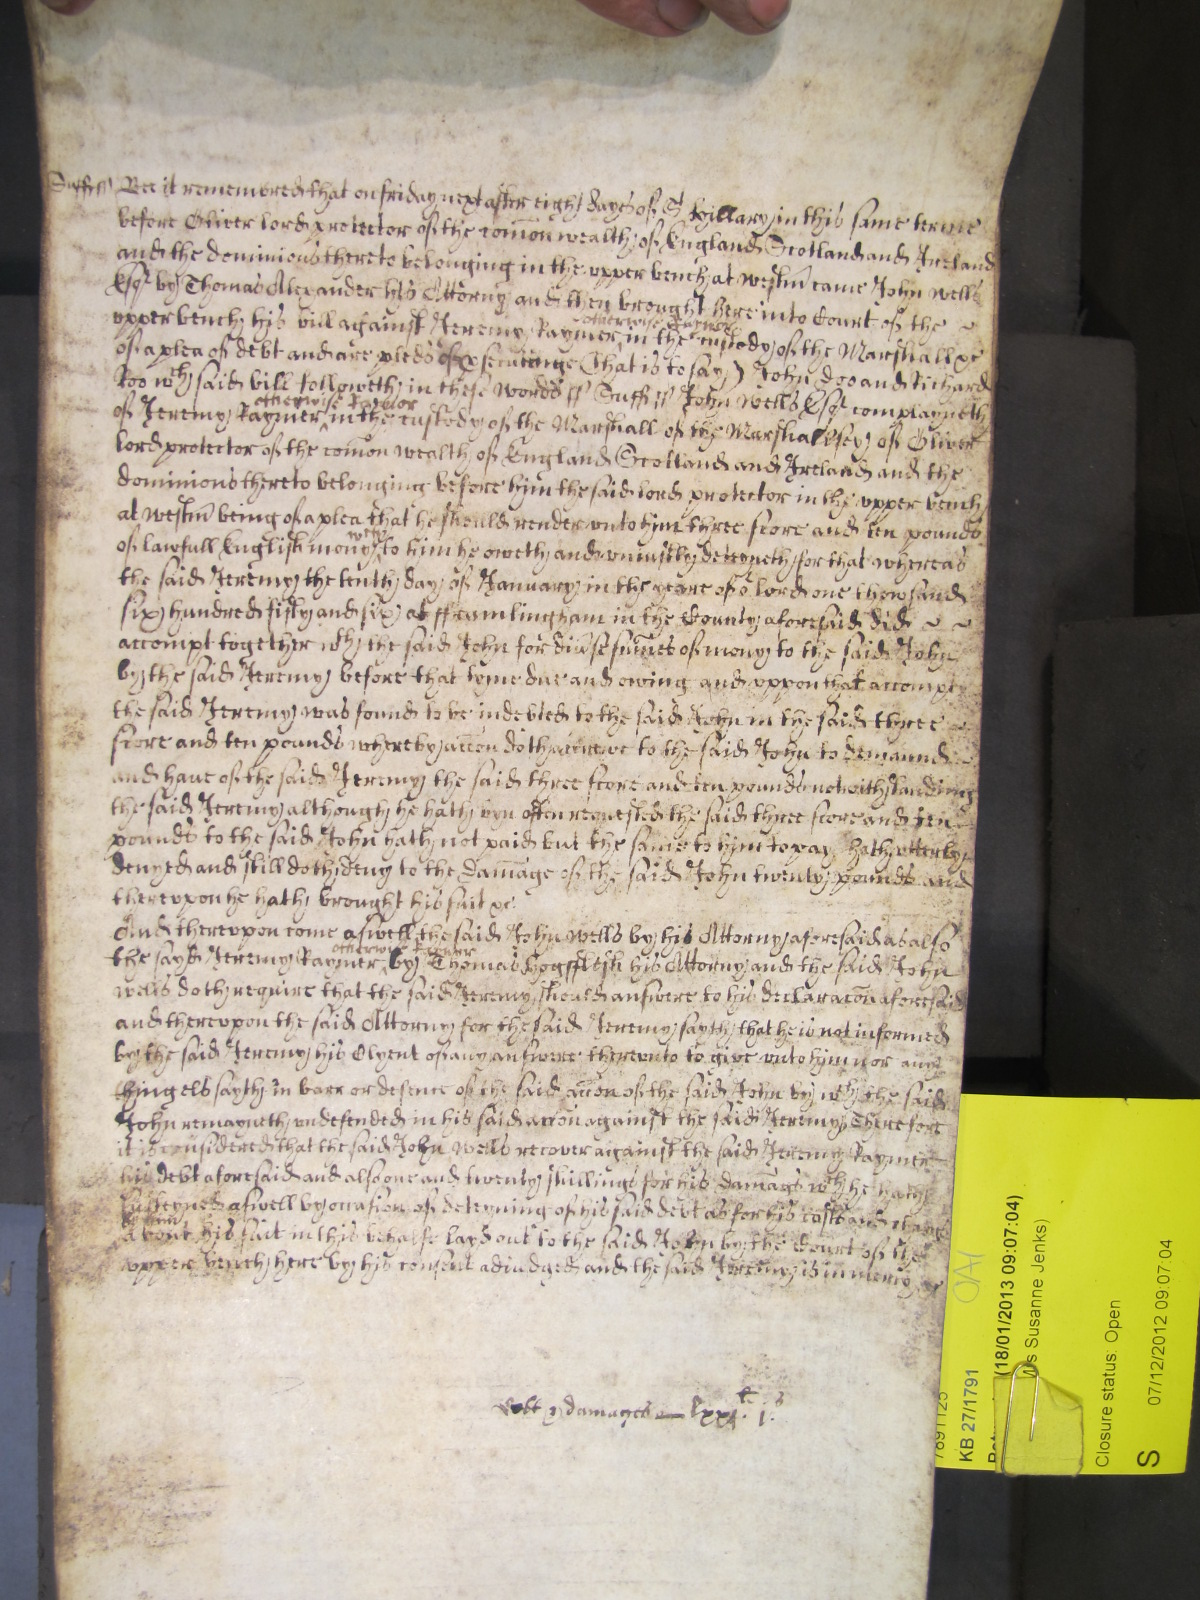 Suff ss Bee it remembred that on friday next after eight dayes of St Hillary in this same terme
before Oliver lord protector of the comon wealth of England Scotland and Ireland
and the dominions thereto belonging in the upper bench at westm came John Wells
Esqr by Thomas Alexander his Attorny and then brought here into Court of the
upper bench his bill against Jeremy Raymer otherwise in the custody of the Marshall &c
of a plea of debt and are pleds of prsecuting That is to say John Doo and Richard
Roo wch said bill followeth in these words ss Suff ss John Wells Esqr complayneth
of Jeremy Raymer otherwise in the custody of the Marshall of the Marshallsey of Oliver
lord protector of the comon wealth of England Scotland and Ireland and the
dominions thereto belonging before him the said lord protector in the upper bench
at westm being of a plea that he should render unto him three score and ten pounds
of lawfull English mony wch to him he oweth and uniustly deteyneth for that whereas
the said Jeremy the tenth day of January in the yeare of or lord one thowsand
six hundred fifty and six at fframlingham in the County aforesaid did
accompt together wth the said John for divse sumes of mony to the said John
by the said Jeremy before that tyme due and owing and uppon that accompt
the said Jeremy was found to be indebted to the said John in the said three
score and ten pounds whereby accon doth accrewe to the said John to demaund
and have of the said Jeremy the said three score and ten pounds notwithstanding
the said Jeremy although he hath byn often requested the said three score and ten
pounds to the said John hath not paid but the same to him to pay hath utterly
denyed and still doth deny to the damage of the said John twenty pounds and
thereupon he hath brought his suit &c
And thereupon come aswell the said John Wells by his Attorny aforesaid as also
the sayd Jeremy Raymer otherwise by Thomas Hoggflesh his Attorny and the said John
Wells doth require that the said Jeremy should answere to his declaracon aforesaid
and thereupon the said Attorny for the said Jeremy sayth that he is not informed
by the said Jeremy his Clyent of any answere thereunto to give unto him nor any
thing els sayth in barr or defence of the said accon of the said John by wch the said
John remayneth undefended in his said accon against the said Jeremy Therefore
it is considered that the said John Wells recover against the said Jeremy Raymer
his debt aforesaid and also one and twenty shillings for his damags wch he hath
susteyned aswell by occasion of deteyning of his said debt as for his costs and charges
about his suit in this behalfe layd out to the said John by the Court of the
upper bench here by his consent adiudged and the said Jeremy is in mercy &c
Debt & damages — lxxj li j s
KB 27/1791
(18/01/2013 09:07:04)
Susanne Jenks)
Closure status: Open
S 07/12/2012 09:07:04